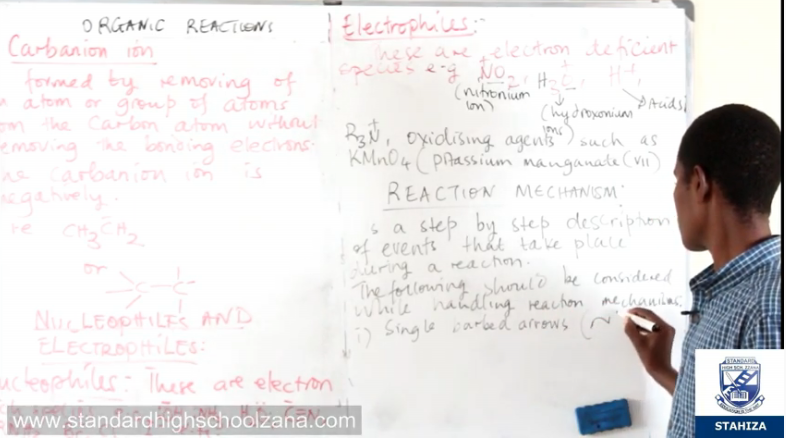 ORGANIC REACTIONS
Carbanion ion
formed by removing of
atom or group of atoms
om the Carbon atom without
emoving the bonding electrons.
he carbanion ion is
negatively.
CH3C̄H2
or
C C
NUCLEOPHILES AND
ELECTROPHILES:
ucleophiles: These are electron
Electrophiles:-
hese are electron deficient
species e.g NO2, H3 , H+,
(nitronium ion)
(hydroxonium ions)
Acids
R3N+, oxidising agents such as
KMnO4 (potassium manganate (VII)
REACTION MECHANISM:
s a step by step description
of events that take place
during a reaction.
The following should be considered
while handling reaction mechanisms:
i) Single barbed arrows (
www.standardhighschoolzana.com
STANDARD
HIGH SCHOOL ZZANA
STAHIZA